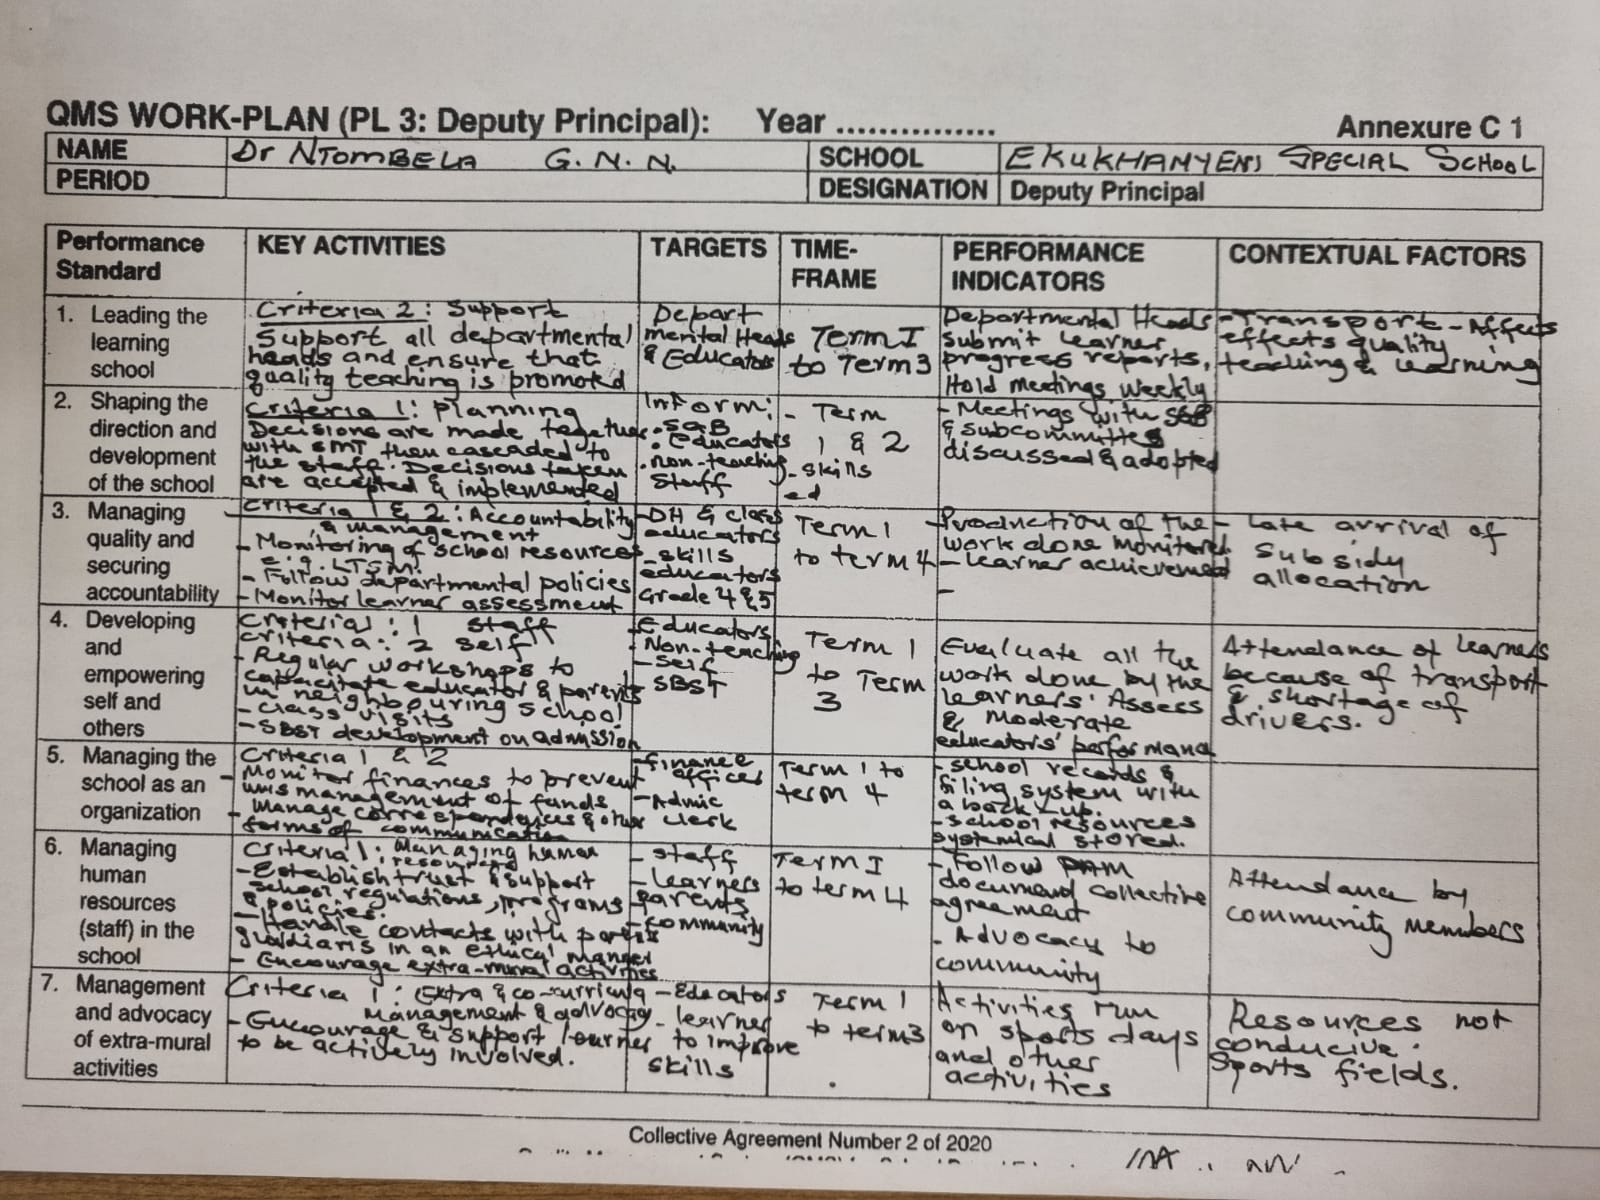 QMS WORK-PLAN (PL 3: Deputy Principal): Year ...............
Annexure C 1
NAME Dr NTOMBELA G.N.N. SCHOOL EKUKHANYENI SPECIAL SCHOOL
PERIOD DESIGNATION Deputy Principal
Performance Standard
KEY ACTIVITIES
TARGETS
TIME-FRAME
PERFORMANCE INDICATORS
CONTEXTUAL FACTORS
1. Leading the
learning
school
Criteria 2 : Support
Support all departmental
heads and ensure that
quality teaching is promoted
Depart
mental Heads
& Educators
Term I
to Term 3
Departmental Heads
submit learner
progress reports,
Hold meetings weekly
- Transport - Affects
effects quality
teaching & learning
2. Shaping the
direction and
development
of the school
Criteria 1: planning
Decisions are made together
with SMT then cascaded to
the staff. Decisions taken
are accepted & implemented
Inform:
. SGB
. educators
. non-teaching
Staff
- Term
1 & 2
- skills
ed
- Meetings with SGB
& subcommittes
discussed & adopted
3. Managing
quality and
securing
accountability
Criteria 1 & 2 : Accountability
& management
- Monitoring of school resources
e.g. LTSM.
- Follow departmental policies
- Monitor learner assessment
- DH & class
educators
- skills
educators
Grade 4 & 5
Term 1
to term 4
- Production of the
work done monitored
- learner achievement
-
- Late arrival of
Subsidy
allocation
4. Developing
and
empowering
self and
others
Criteria : 1 staff
criteria : 2 self
- Regular workshops to
capacitate educator & parents
in neighbouring school
- class visits
- SBST development on admission
- Educators
- Non-teaching
- Self
- SBST
Term 1
to Term
3
Evaluate all the
work done by the
learners' Assess
& Moderate
educators' performanc
Attendance of learners
because of transport
& shortage of
drivers.
5. Managing the
school as an
organization
Criteria 1 & 2
- Monitor finances to prevent
mismanagement of funds
- Manage correspondences & other
forms of communication
- finance
officer
- Admic
clerk
Term 1 to
term 4
- school records &
filing system with
a back-up.
- school resources
systemical stored.
6. Managing
human
resources
(staff) in the
school
Criteria 1 : Managing human
resources
- Establish trust & support
school regulations, programs
& policies.
- Handle contacts with parents
guardians in an ethical manner
- Encourage extra-mural activities
- Staff
- Learners
- parents
- community
Term I
to term 4
- Follow PAM
document collective
agreement
- Advocacy to
community
Attendance by
community Memmbers
7. Management
and advocacy
of extra-mural
activities
Criteria 1 : Extra & co-curricula
Management & advocacy
- Encourage & support learner
to be actively involved.
- Educators
- learner
to improve
skills
Term 1
to term 3
Activities run
on sports days
and other
activities
Resources not
conducive.
Sports fields.
Collective Agreement Number 2 of 2020